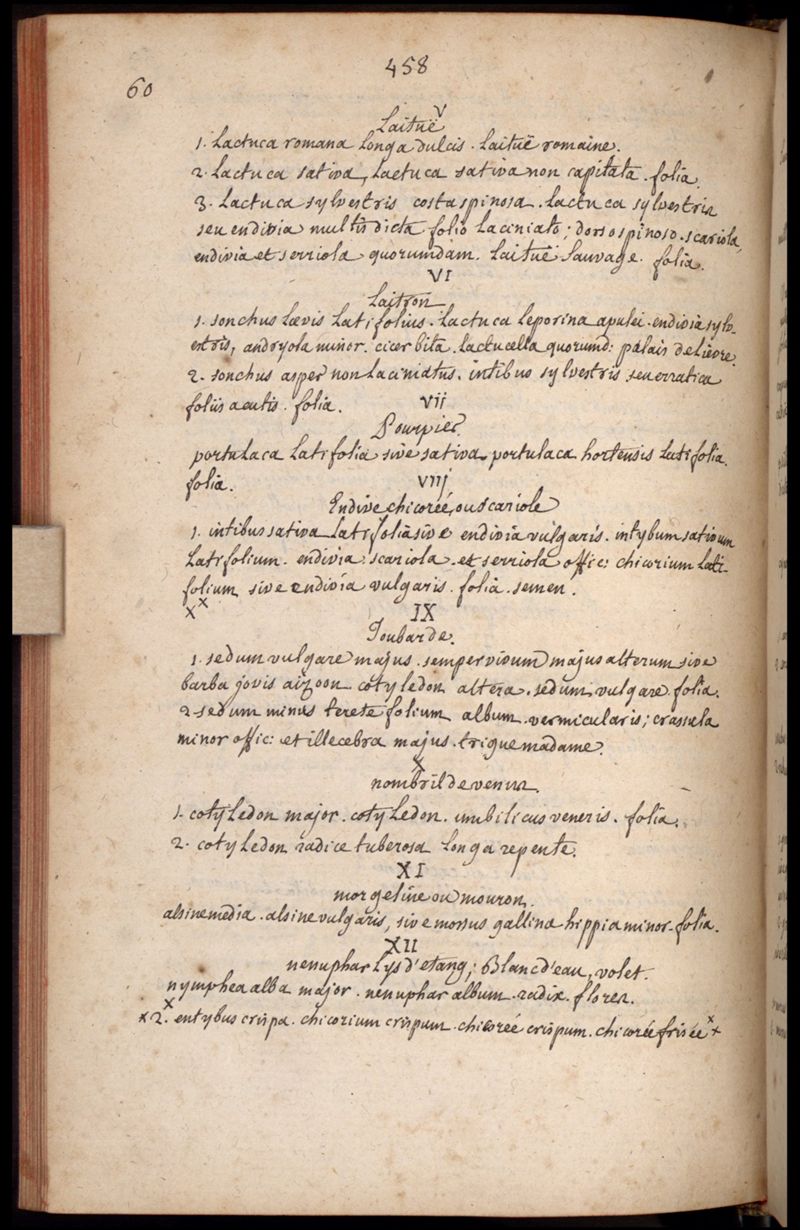 458
60
V
Laituë
1. Lactuca romana Longa dulcis. Laituë romaine.
2. Lactuca sativa, Lactuca sativa non capitata. folia.
3. Lactuca sylvestris costa spinosa. Lactuca sylvestris
seu endivia multis dicta folio Laciniato; dorso spinoso. scariola,
endivia et serriola quorumdam. Laituë Sauvage. folia.
VI
Laitron
1. sonchus Lævis Latifolius. Lactuca Leporina apulei. endivia sylv-
estris, andryola minor. cicerbita. Lactucella quorumd: palais de Lievre.
2. sonchus asper non Laciniatus. intibus sylvestris seu erratica
foliis acutis. folia.
VII
Pourpier.
portulaca Latifolia sive sativa. portulaca hortensis Latifolia.
folia.
VIIJ
Endive chicoreé, ou scariole
1. intibus sativa Latifolia sive endivia vulgaris. intybum sativum
Latifolium. endivia: scariola. et serriola offic: chicorium Lati-
folium sive endivia vulgaris. folia. semen.
x x
IX
Joubarde.
1. sedum vulgare majus. sempervivum majus alterum sive
barba jovis aizoon cotyledon altera. sedum vulgare folia.
2. sedum minus teretefolium album. vermicularis; crassula
minor offic: et illecebra majus. triquemadame.
X
nombril de venus.
1. cotyledon major. cotyledon. umbilicus veneris. folia.
2. cotyledon radice tuberosa Longa repente.
XI
morgeline ou mouron.
alsine media. alsine vulgaris, sive morsus gallina hippia minor. folia.
XII
nenuphar Lys d'etang; Blanc d'eau, volet.
nymphea alba major. nenuphar album. radix. flores.
x
x 2. entybus crispa. chicorium crispum. chicoreé crispum. chicoreé frisée x +